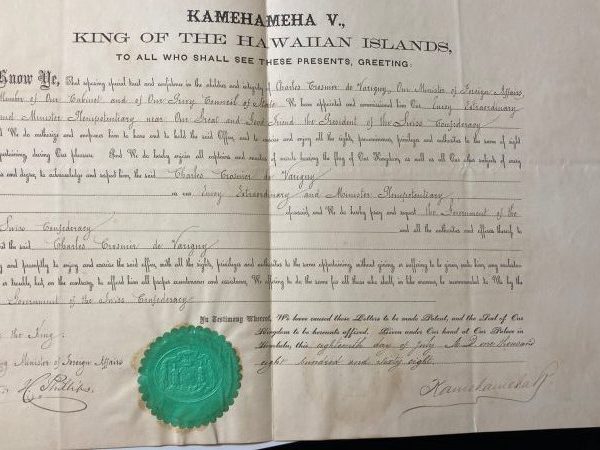 KAMEHAMEHA V.,
KING OF THE HAWAIIAN ISLANDS,
TO ALL WHO SHALL SEE THESE PRESENTS, GREETING:
Know Ye, That reposing special trust and confidence in the abilities and integrity of Charles Crosnier de Varigny, Our Minister of Foreign Affairs,
Member of Our Cabinet and of Our Privy Council of State We have appointed and commissioned him Our Envoy Extraordinary
and Minister Plenipotentiary near Our Great and Good Friend the President of the Swiss Confederacy
And We do authorize and empower him to have and to hold the said Office, and to exercise and enjoy all the rights, preeminences, privileges and authorities to the same of right
appertaining, during Our pleasure. And We do hereby enjoin all captains and of vessels bearing the flag of Our Kingdom, as well as all Our other subjects of every
and degree, to acknowledge and respect him, the said Charles Crosnier de Varigny
as our Envoy Extraordinary and Minister Plenipotentiary
aforesaid, and We do hereby pray and request the Government of the
Swiss Confederacy and all the authorities and officers thereof to
the said Charles Crosnier de Varigny
and peaceably to enjoy and exercise the said office, with all the rights, privileges and authorities to the same appertaining, without giving or suffering to be given unto him, any molestation
or trouble, but, on the contrary, to afford him all proper countenance and assistance, We offering to do the same for all those who shall, in like manner, be recommended to Us by the
Government of the Swiss Confederacy.
In Testimony Whereof, We have caused these Letters to be made Patent, and the Seal of Our
Kingdom to be hereunto affixed. Given under Our hand at Our Palace in
Honolulu, this eighteenth day of July A. D. one thousand
eight hundred and sixty eight.
the King:
Minister of Foreign Affairs
Kamehameha R